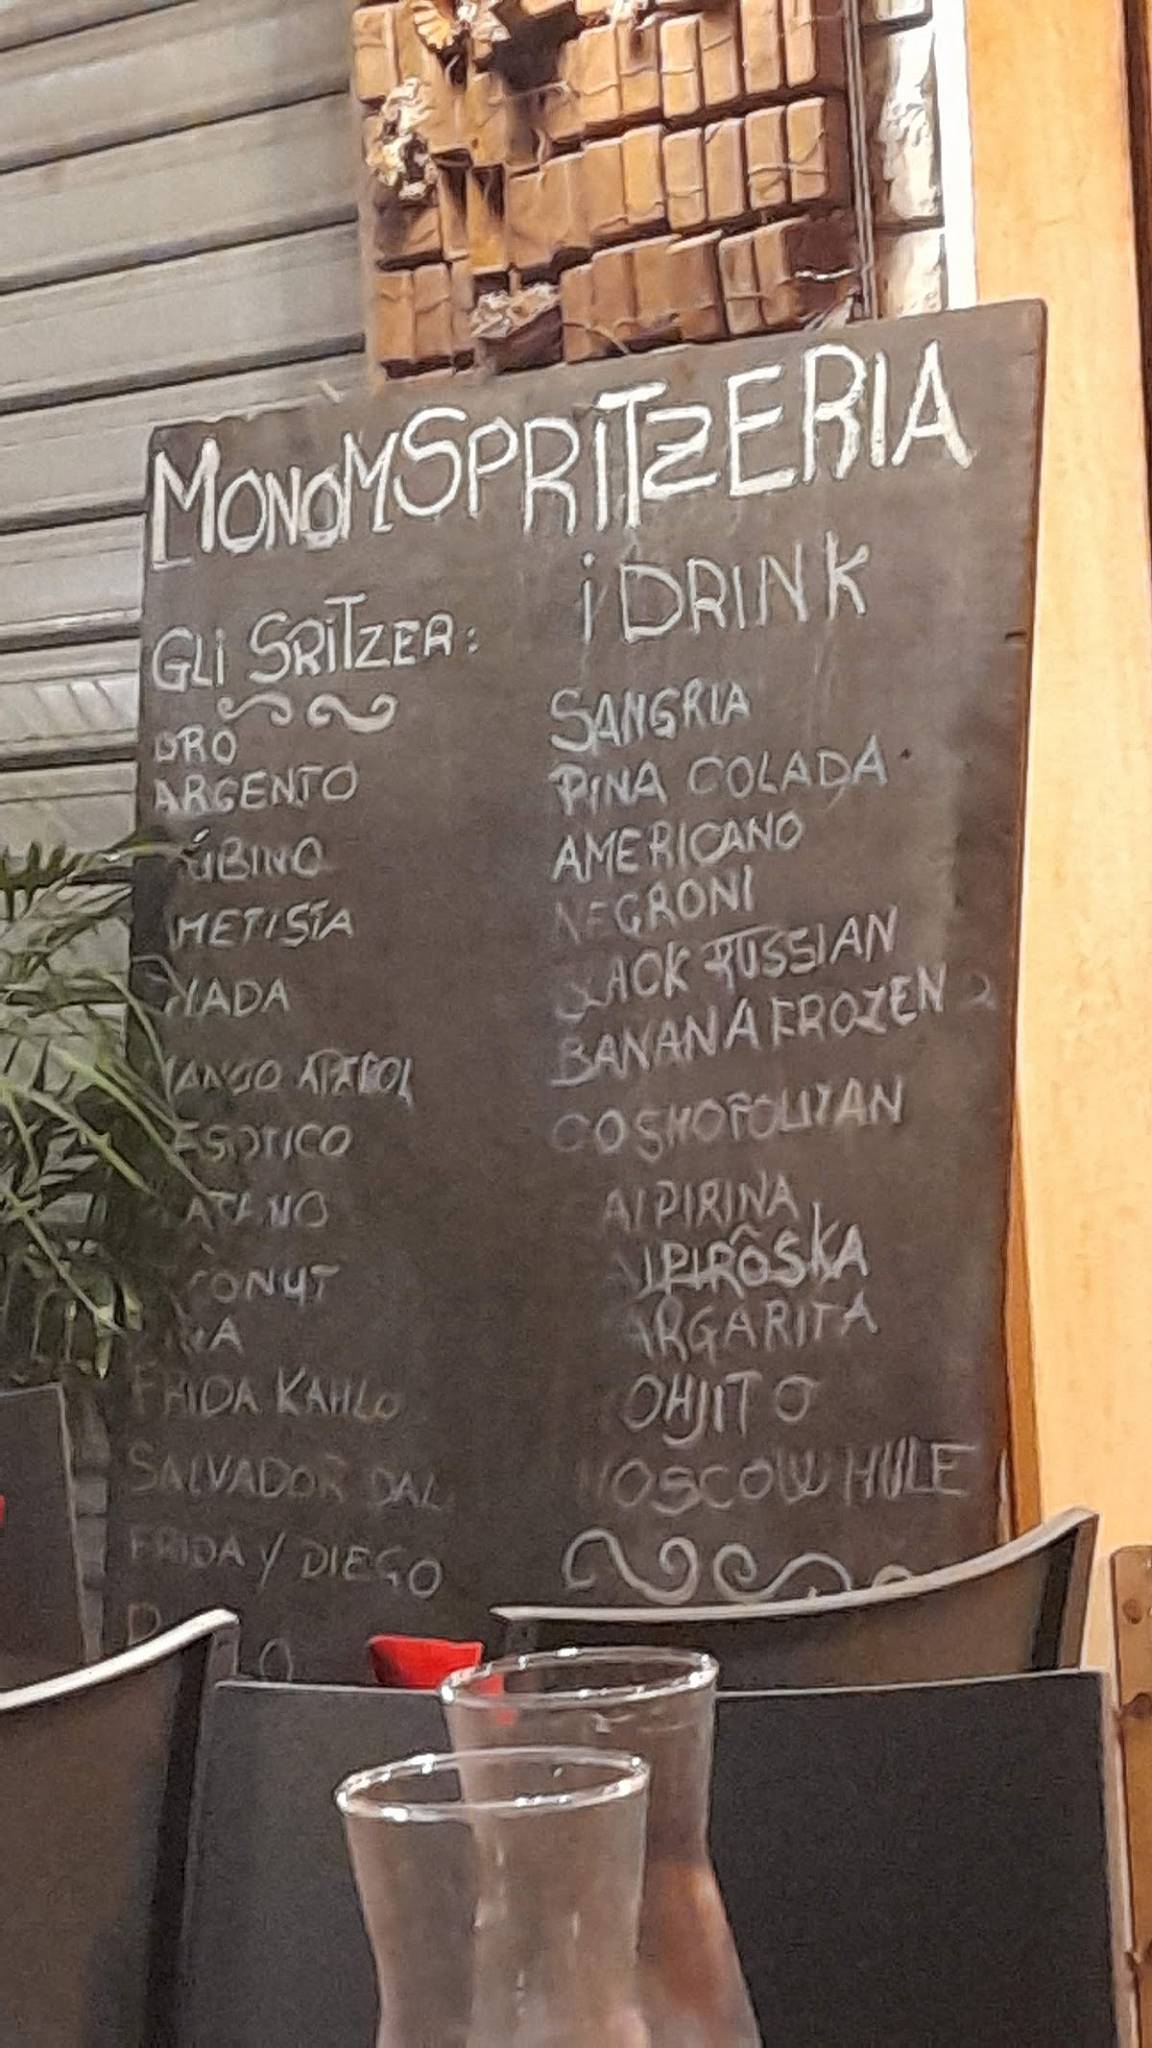 MONOMSPRITZERIA
GLI SRITZER:
ORO
ARGENTO
RUBINO
AMETISTA
MANGO APEROL
ESOTICO
FRIDA KAHLO
SALVADOR DAL
FRIDA Y DIEGO
i DRINK
SANGRIA
PINA COLADA
AMERICANO
NEGRONI
BLACK RUSSIAN
BANANA FROZEN
COSMOPOLITAN
AIPIRINA
AIPIRÔSKA
ARGARITA
OHJITO
MOSCOW MULE